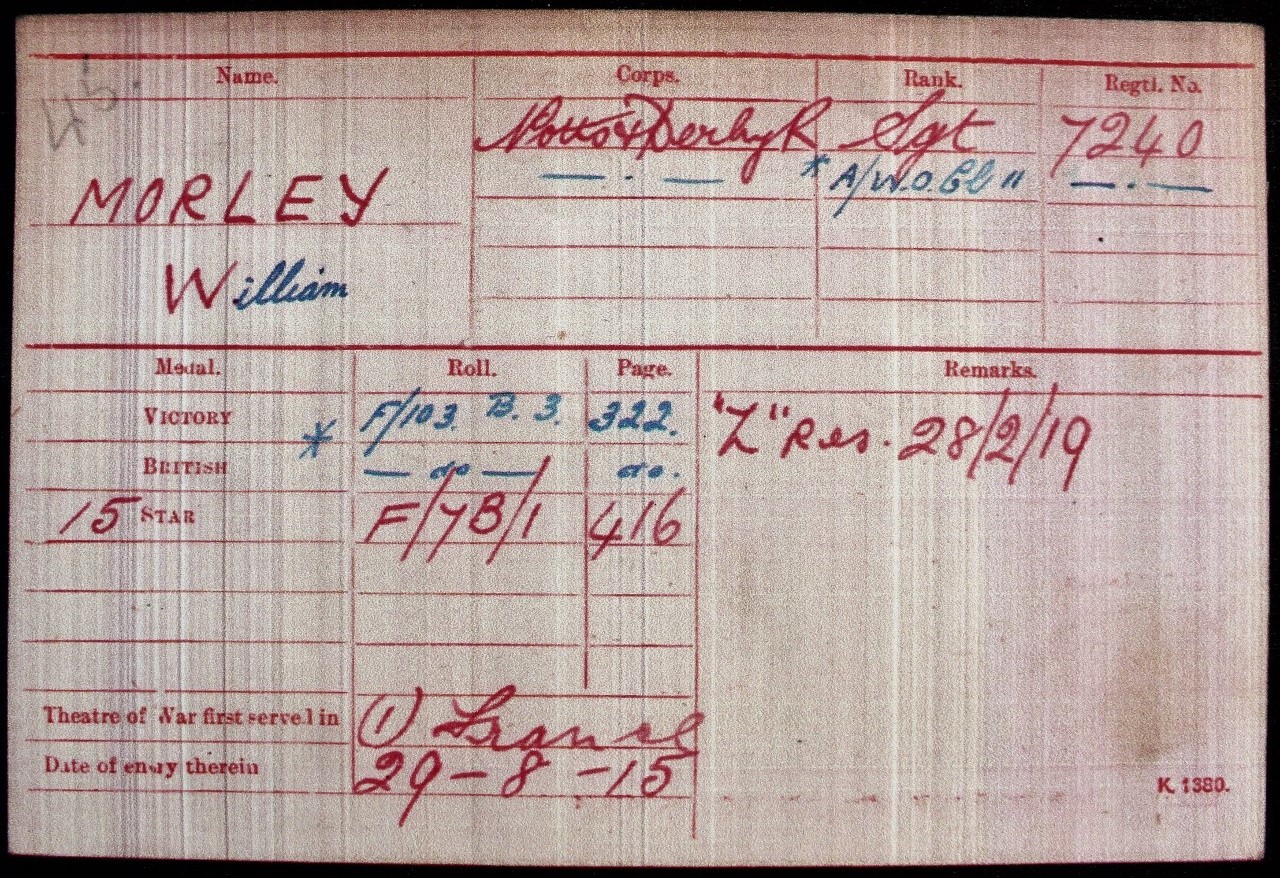 Name. Corps. Rank. Regtl. No.
Notts & Derby R Sgt 7240
— . — * A/W.O. Cl II — . —
MORLEY
William
Medal. Roll. Page. Remarks.
VICTORY F/103. B. 3. 322. "Z" Res. 28/2/19
* BRITISH — do — do.
15 STAR F/7B/1 416
Theatre of War first served in (1) France
Date of entry therein 29 - 8 - 15
K. 1380.